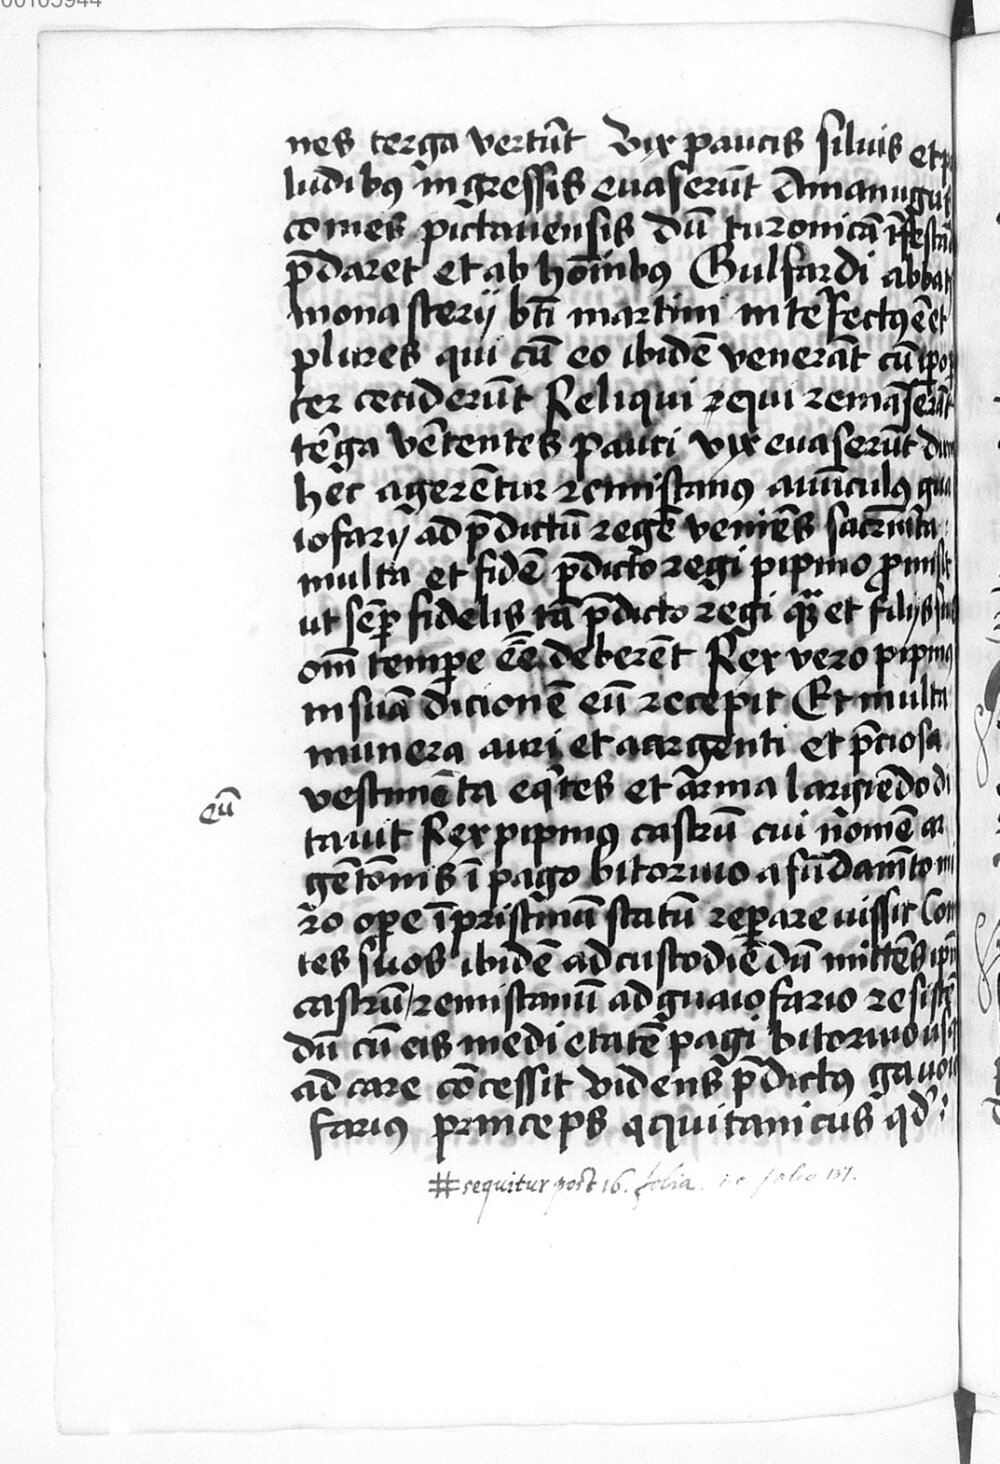 00105944
nes terga vertu̅t Vix paucis siluis et p
ludibꝰ ingressis euaseru̅t Amanugus
comes pictauensis du̅ turonica̅ infesta̅
p̅daret et ab ho̅inibꝰ Gulfardi abbat
monasterij bt̅i martini interfectꝰ e̅ et
plures qui cu̅ eo ibide̅ venera̅t cu̅ ip̅o p
ter cecideru̅t Reliqui requi rema̅sera̅t
te̅ga ve̅tentes pauci vix euaseru̅t du̅
hec agere̅tur remistanꝰ auu̅culꝰ gua
iofarij ad p̅dictu̅ rege̅ venie̅s sacra̅nta
multa et fide̅ p̅dicto regi pipino ꝓmisit
ut se̅ꝑ fidelis ta̅ p̅dicto regi qua̅ et filijs su
om̅i tempe e̅e̅ debere̅t Rex vero pipinꝰ
in sua̅ dicione̅ eu̅ recepit Et multa
munera auri et aargenti et p̅ciosa
vestime̅ta eq̅tes et arma largie̅do di
eu̅
tauit Rex pipinꝰ castru̅ cui nome̅ ar
ge̅to̅nis i̅ pago bitoriuo a fu̅dame̅to mi
ro oꝑe i̅ pristinu̅ statu̅ reꝑare iussit Com
tes suos ibide̅ ad custodie̅du̅ mitte̅s ip̅m
castru̅/remistanu̅ ad guaiofario resiste̅
du̅ cu̅ eis medietate̅ pagi bitoriuo usqꝫ
ad care co̅cessit Videns p̅dictꝰ gauoie
fariꝰ princeps aquitanicus qd̕:
# sequitur post 16. folia. in folio 137.